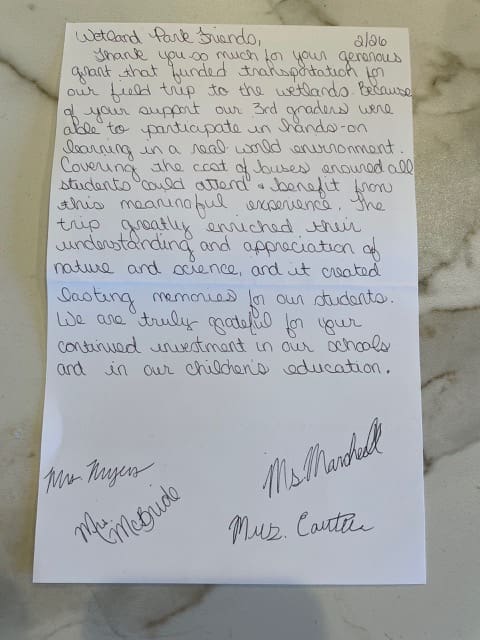 Wetland Park Friends, 2/26
Thank you so much for your generous
grant that funded transportation for
our field trip to the wetlands. Because
of your support our 3rd graders were
able to participate in hands-on
learning in a real world environment.
Covering the cost of buses ensured all
students could attend & benefit from
this meaningful experience. The
trip greatly enriched their
understanding and appreciation of
nature and science, and it created
lasting memories for our students.
We are truly grateful for your
continued investment in our schools
and in our children's education.
Mrs. Myers
Ms. Marshall
Mrs. McBride
Mrs.